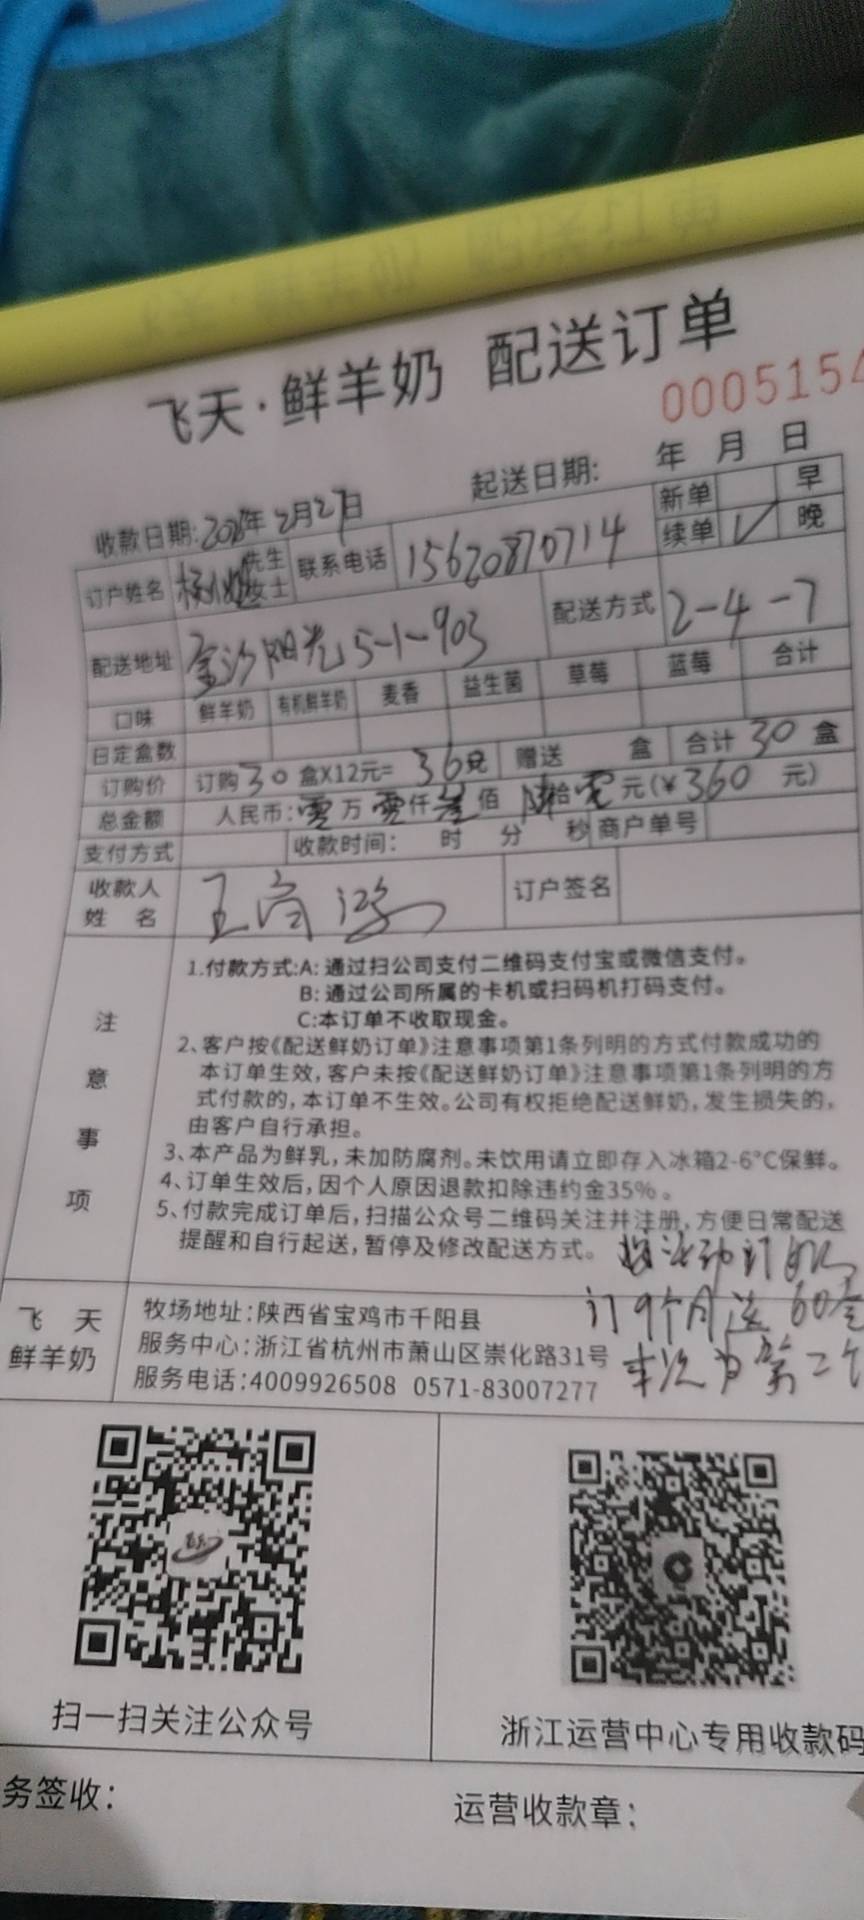 飞天·鲜羊奶 配送订单
000515
收款日期:2026年2月27日 起送日期: 年 月 日
订户姓名 先生 女士 联系电话 15620870714 新单 早
续单 √ 晚
配送地址 金沙阳光5-1-903 配送方式 2-4-7
口味 鲜羊奶 有机鲜羊奶 麦香 益生菌 草莓 蓝莓 合计
日定盒数
订购价 订购30盒X12元= 36元 赠送 盒 合计 30 盒
总金额 人民币:零万零仟叁佰陆拾零元(¥360 元)
支付方式 收款时间: 时 分 秒 商户单号
收款人
姓 名 王 订户签名
注意事项
1.付款方式:A:通过扫公司支付二维码支付宝或微信支付。
B:通过公司所属的卡机或扫码机打码支付。
C:本订单不收取现金。
2、客户按《配送鲜奶订单》注意事项第1条列明的方式付款成功的
本订单生效,客户未按《配送鲜奶订单》注意事项第1条列明的方
式付款的,本订单不生效。公司有权拒绝配送鲜奶,发生损失的,
由客户自行承担。
3、本产品为鲜乳,未加防腐剂。未饮用请立即存入冰箱2-6°C保鲜。
4、订单生效后,因个人原因退款扣除违约金35%。
5、付款完成订单后,扫描公众号二维码关注并注册,方便日常配送
提醒和自行起送,暂停及修改配送方式。
按活动订奶
订9个月送60盒
本次为第二个
飞 天
鲜羊奶
牧场地址:陕西省宝鸡市千阳县
服务中心:浙江省杭州市萧山区崇化路31号
服务电话:4009926508 0571-83007277
扫一扫关注公众号
浙江运营中心专用收款码
务签收:
运营收款章: